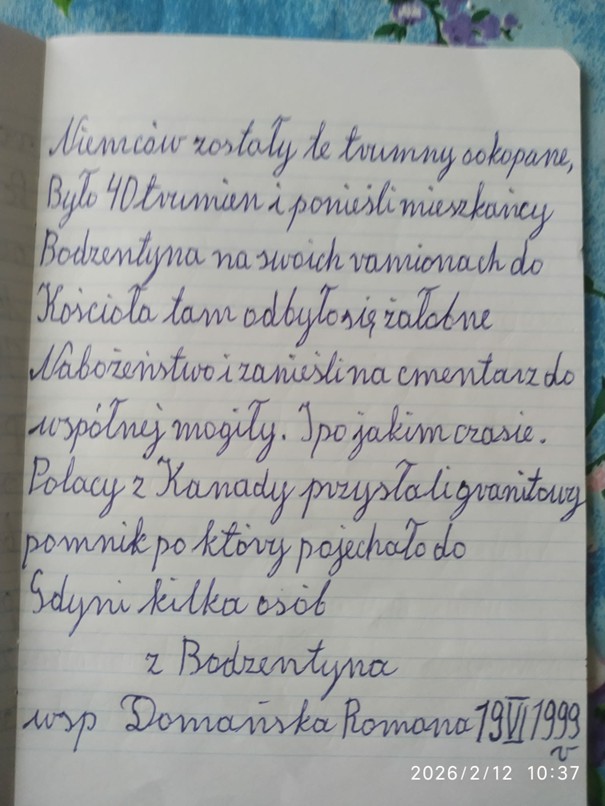 Niemców zostały te trumny ookopane,
Było 40 trumien i ponieśli mieszkańcy
Bodzentyna na swoich ramionach do
Kościoła tam odbyło się żałobne
Nabożeństwo i zanieśli na cmentarz do
wspólnej mogiły. I po jakim czasie.
Polacy z Kanady przysłali granitowy
pomnik po który pojechało do
Gdyni kilka osób
z Bodzentyna
wsp Domańska Romana 19 VI 1999
r
2026/2/12 10:37